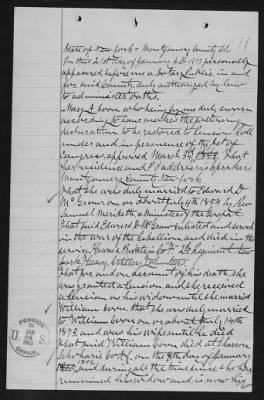 State of New York = Montgomery County SS.
On this 21st day of January A.D. 1903 personally
appeared before me a Notary Public in and
for said County, duly authorized by law
to administer oaths
Mary E. Born who being by me duly sworn
according to law makes the following
declaration to be restored to Pension Roll
under and in pursuance of the Act of
Congress approved March 3d That
her residence and P.O. address is Sprakers
Montgomery County New York
That she was duly married to Edward D.
McGrown on or about July 4th 1854 by Rev
Samuel Meridith, a Minister of the Gospel
That said Edward D. McGrown enlisted and served
in the war of the rebellion and died in the
service Regiment New
York Heavy Artillery Volunteers
That for and on account of his death she
was granted a pension, and she received
a pension as his widow until she married
William Born, that she was duly married
to William Born on or about July 14th
1873, and was his wife until he died
That said William Born died at Sharon
N.Y. on the 8th day of January
1902
and during all the time since she has
remained his widow and is now his
PENSION
JAN
1903
U. S.
OFFICE